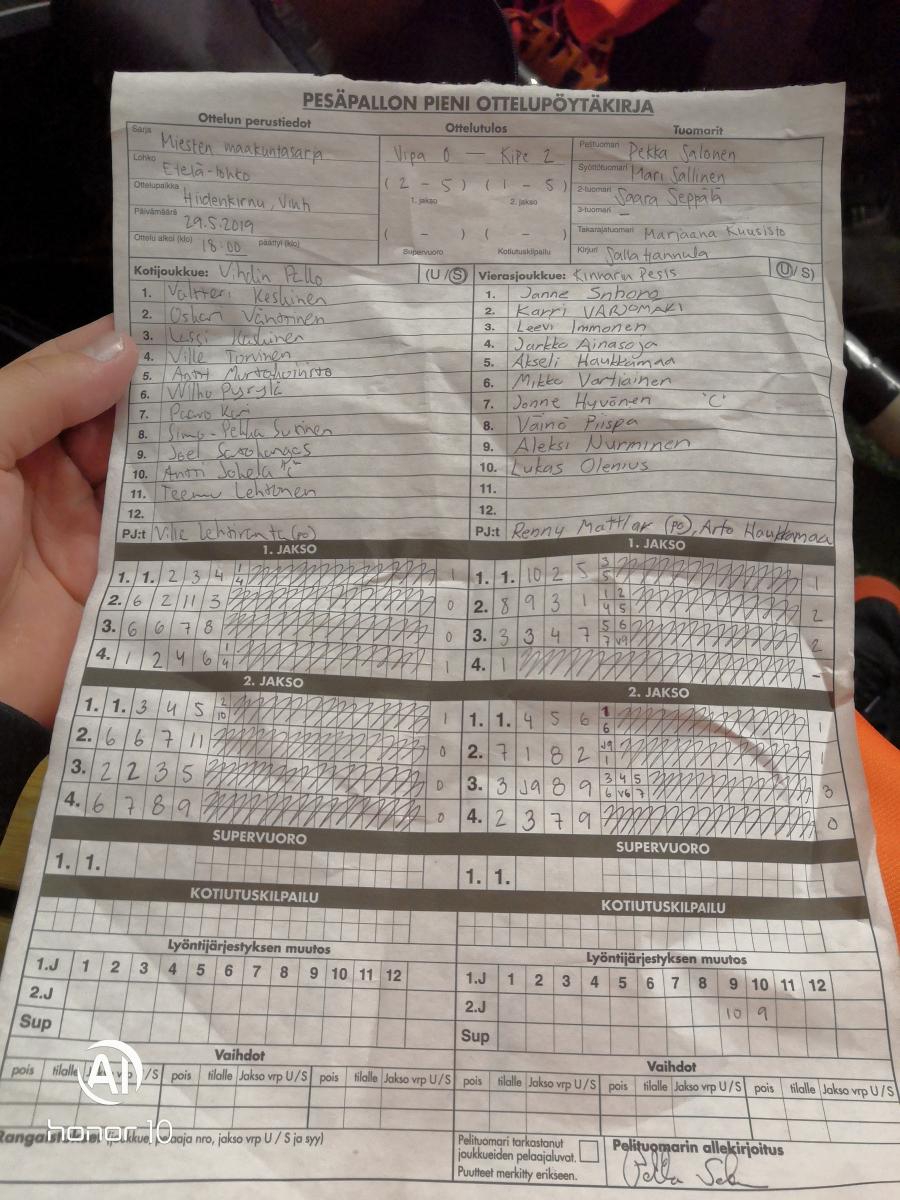 PESÄPALLON PIENI OTTELUPÖYTÄKIRJA
Ottelun perustiedot Ottelutulos Tuomarit
Sarja Miesten maakuntasarja
Lohko Etelä-lohko
Ottelupaikka Hiidenkirnu, Vihti
Päivämäärä 29.5.2019
Ottelu alkoi (klo) 18:00 päättyi (klo)
Vipa 0 – Kipe 2
(2 – 5) (1 – 5)
1. jakso 2. jakso
( – ) ( – )
Supervuoro Kotiutuskilpailu
Pelituomari Pekka Salonen
Syöttötuomari Mari Sallinen
2-tuomari Saara Seppälä
3-tuomari –
Takarajatuomari Marjaana Kuusisto
Kirjuri Salla Hannula
Kotijoukkue: Vihdin Pallo (U/S)
1. Valtteri Keskinen
2. Oskari Vänttinen
3. Lassi
4. Ville Torvinen
5. Antti
6. Wilho Pyrylä
7. Paavo
8. Simo-Pekka Surinen
9. Joel
10. Antti Johela "C"
11. Teemu Lehtonen
12.
PJ:t Ville Lehtiranta (po)
Vierasjoukkue: Kinnarin Pesis (U/S)
1. Janne
2. Karri VARJOMÄKI
3. Leevi Immonen
4. Jarkko Ainasoja
5. Akseli Haukkamaa
6. Mikko Vartiainen
7. Jonne Hyvönen "C"
8. Väinö Piispa
9. Aleksi Nurminen
10. Lukas Olenius
11.
12.
PJ:t Renny Mattlar (po), Arto Haukkamaa
1. JAKSO
1. 1. 2 3 4 1 4 1
2. 6 2 11 3 0
3. 6 6 7 8 0
4. 1 2 4 6 1 4 1
2. JAKSO
1. 1. 3 4 5 2 10 1
2. 6 6 7 11 0
3. 2 2 3 5 0
4. 6 7 8 9 0
SUPERVUORO
1. 1.
KOTIUTUSKILPAILU
Lyöntijärjestyksen muutos
1.J 1 2 3 4 5 6 7 8 9 10 11 12
2.J
Sup
Vaihdot
pois tilalle Jakso vrp U/S pois tilalle Jakso vrp U/S pois tilalle Jakso vrp U/S
1. JAKSO
1. 1. 10 2 5 3 5 1
2. 8 9 3 1 1 2 4 5 2
3. 3 3 4 7 5 6 7 v9 2
4. 1 –
2. JAKSO
1. 1. 4 5 6 1 6 1
2. 7 1 8 2 J9 1 1
3. 3 J9 8 9 3 4 5 6 v6 7 3
4. 2 3 7 9 0
SUPERVUORO
1. 1.
KOTIUTUSKILPAILU
Lyöntijärjestyksen muutos
1.J 1 2 3 4 5 6 7 8 9 10 11 12
2.J 10 9
Sup
Vaihdot
pois tilalle Jakso vrp U/S pois tilalle Jakso vrp U/S pois tilalle Jakso vrp U/S
nro, jakso vrp U / S ja syy)
Pelituomari tarkastanut
joukkueiden pelaajaluvat.
Puutteet merkitty erikseen.
Pelituomarin allekirjoitus
AI
honor 10